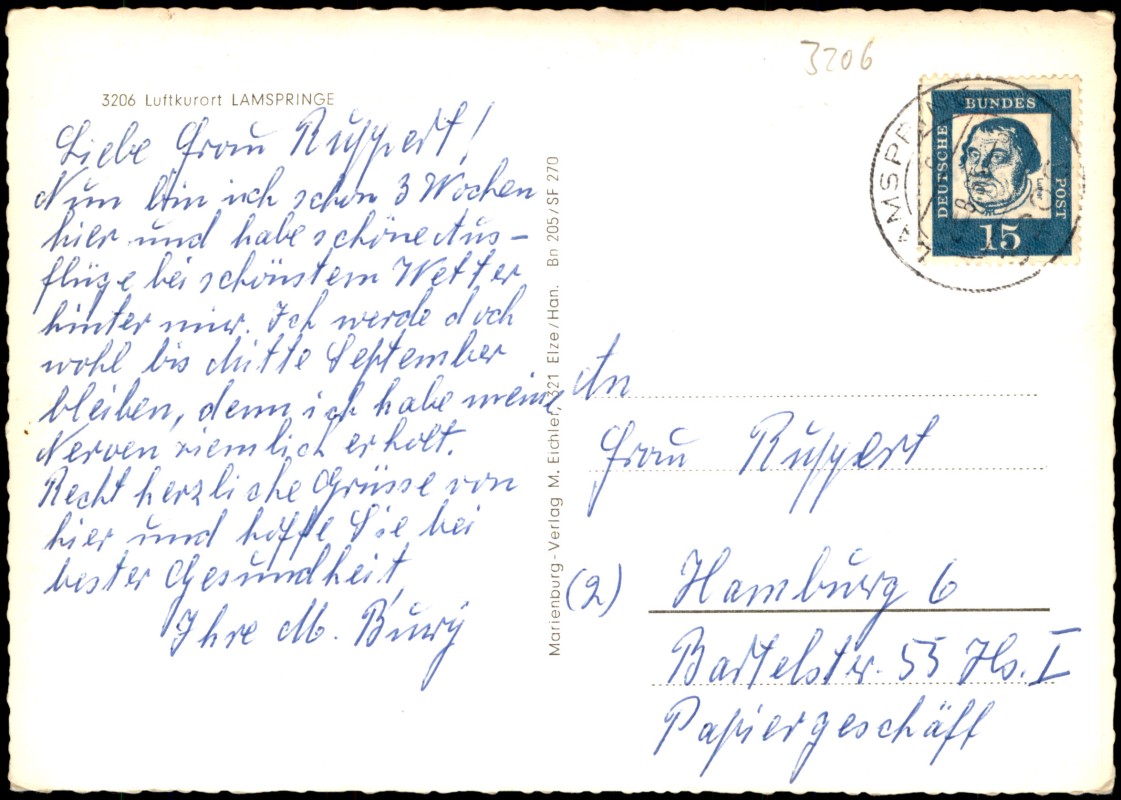 3206
3206 Luftkurort LAMSPRINGE
Liebe Frau Ruppert!
Nun bin ich schon 3 Wochen
hier und habe schöne Aus-
flüge bei schönstem Wetter
hinter mir. Ich werde doch
wohl bis Mitte September
bleiben, denn ich habe meine
Nerven ziemlich erholt.
Recht herzliche Grüsse von
hier und hoffe Sie bei
bester Gesundheit,
Ihre M.
Marienburg-Verlag M. Eichler, 321 Elze/Han. Bn 205/SF 270
LAMSPRINGE
DEUTSCHE BUNDES POST
Luther
15
An
Frau Ruppert
(2) Hamburg 6
Bartelstr. 55 Hs. I
Papiergeschäft